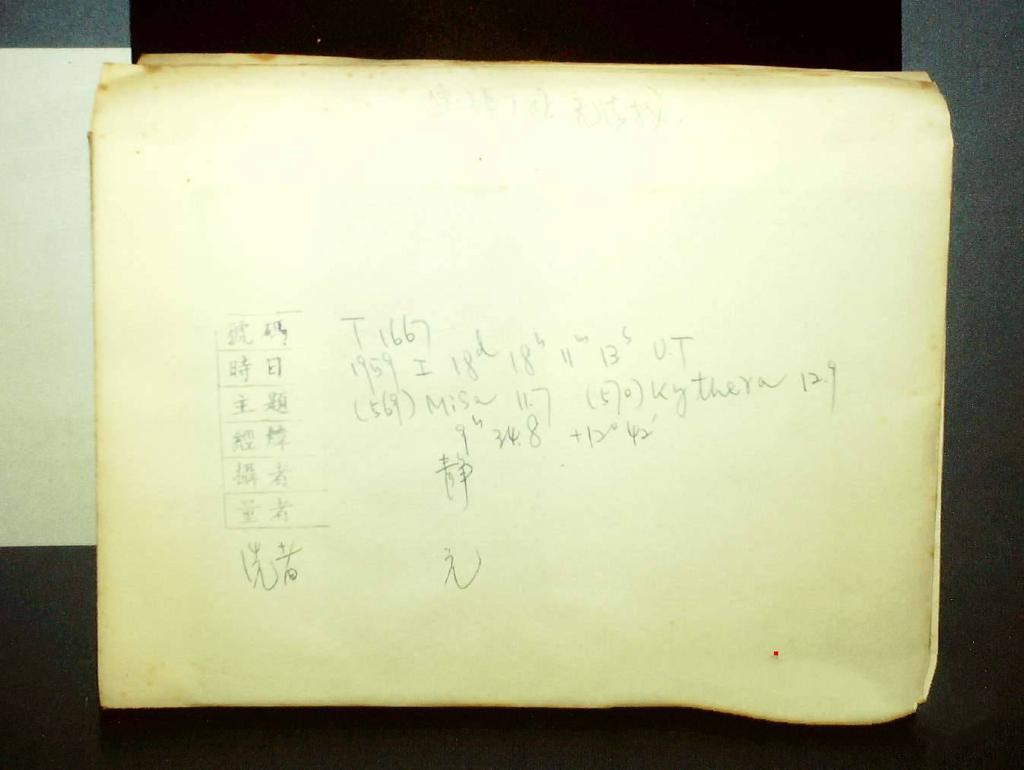 號碼 T 1667
時日 1959 I 18d 18h 11m 13s U.T
主題 (569) Misa 11.7 (570) Kythera 12.9
經緯 9h 34.8 +12° 42'
攝者 靜
量者
洗者 元